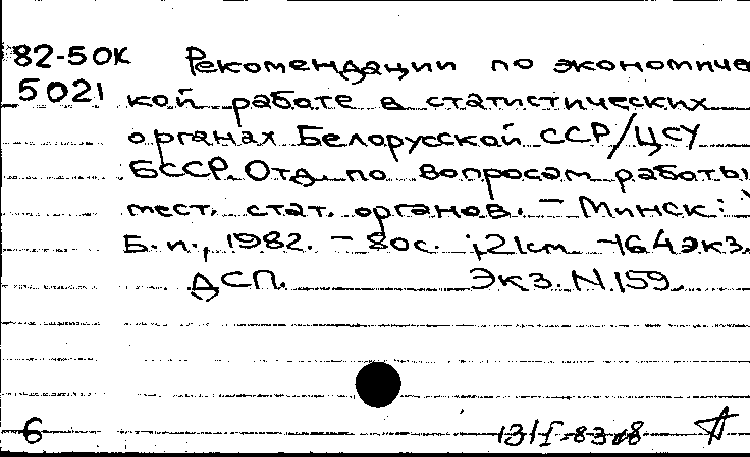 82-5ОК Рекомендации по экономиче
5021 кой работе в статистических
органах Белорусской ССР/ЦСУ
БССР. Отд. по вопросам работы
мест. стат. органов. – Минск:
Б.и., 1982. – 80с. ; 21cm -164экз.
ДСП. Экз. N.159
6